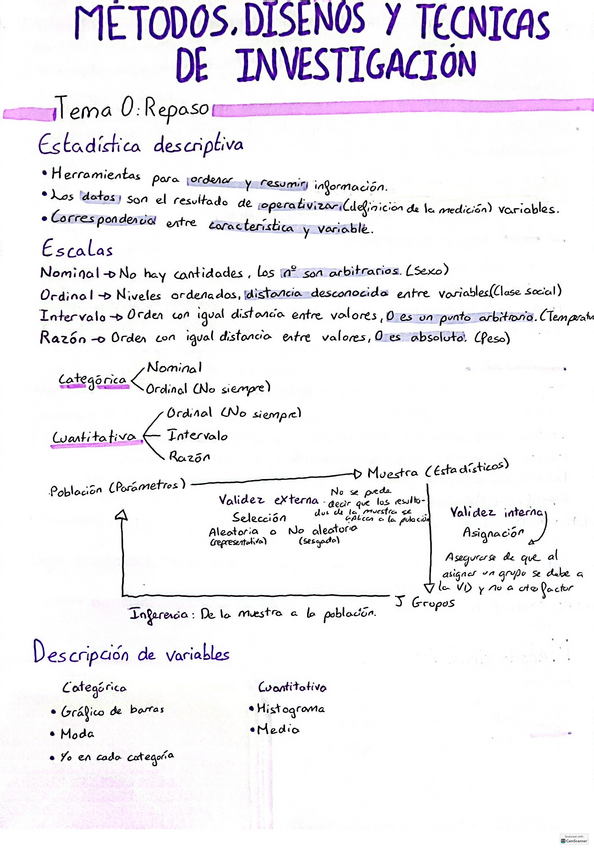 MÉTODOS, DISEÑOS Y TECNICAS
DE INVESTIGACIÓN
Tema 0: Repaso
Estadística descriptiva
• Herramientas para ordenar y resumir información.
• Los datos son el resultado de operativizar (definición de la medición) variables.
• Correspondencia entre característica y variable.
Escalas
Nominal → No hay cantidades, los nº son arbitrarios. (Sexo)
Ordinal → Niveles ordenados, distancia desconocida entre variables (Clase social)
Intervalo → Orden con igual distancia entre valores, 0 es un punto arbitrario. (Temperatu
Razón → Orden con igual distancia entre valores, 0 es absoluto. (Peso)
Categórica
Nominal
Ordinal (No siempre)
Cuantitativa
Ordinal (No siempre)
Intervalo
Razón
Población (Parámetros)
Muestra (Estadísticos)
Validez externa
Selección
Aleatoria o No aleatoria
(representativa) (sesgada)
No se puede
decir que los resulta-
dos de la muestra se
aplican a la población
Validez interna
Asignación
Asegurarse de que al
asignar un grupo se debe a
la VI y no a otro factor
J Grupos
Inferencia: De la muestra a la población.
Descripción de variables
Categórica
• Gráfico de barras
• Moda
• % en cada categoría
Cuantitativa
• Histograma
• Media
Scanned with
CamScanner